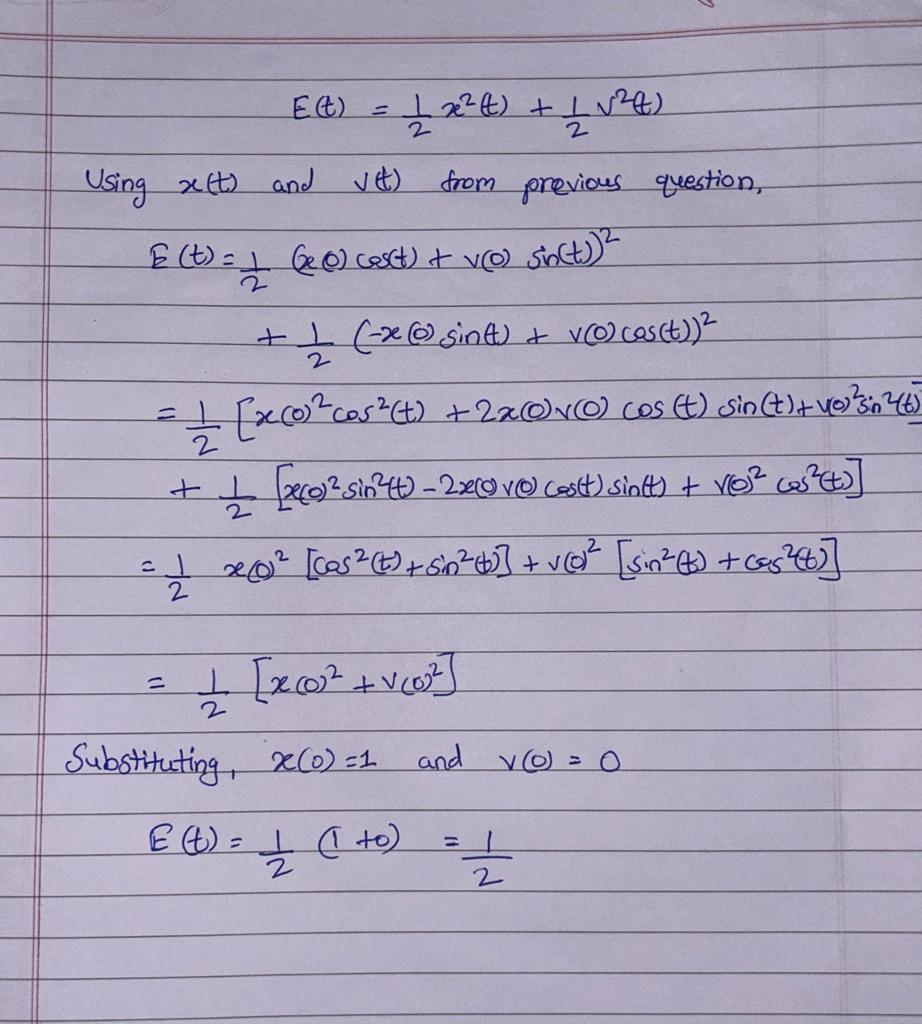 E(t) = 1/2 x²(t) + 1/2 v²(t)
Using x(t) and v(t) from previous question,
E(t) = 1/2 (x(0) cos(t) + v(0) sin(t))²
+ 1/2 (-x(0) sin(t) + v(0) cos(t))²
= 1/2 [x(0)² cos²(t) + 2x(0)v(0) cos(t) sin(t) + v(0)² sin²(t)]
+ 1/2 [x(0)² sin²(t) - 2x(0)v(0) cos(t) sin(t) + v(0)² cos²(t)]
= 1/2 x(0)² [cos²(t) + sin²(t)] + v(0)² [sin²(t) + cos²(t)]
= 1/2 [x(0)² + v(0)²]
Substituting, x(0) = 1 and v(0) = 0
E(t) = 1/2 (1 + 0) = 1/2